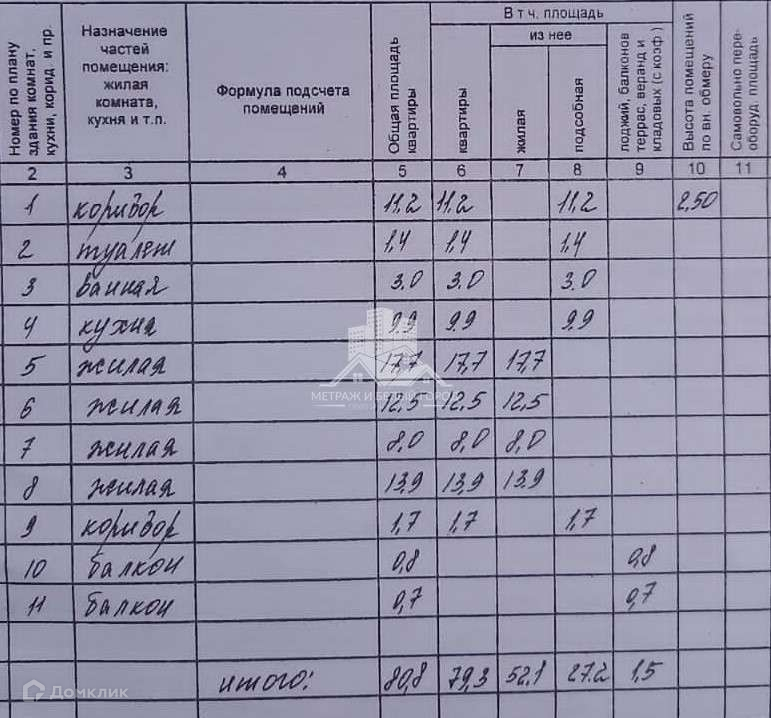 Номер по плану здания комнат, кухни, корид. и пр.
Назначение частей помещения: жилая комната, кухня и т.п.
Формула подсчета помещений
Общая площадь квартиры
В т ч. площадь
из нее
квартиры
жилая
подсобная
лоджий, балконов террас, веранд и кладовых (с коэф )
Высота помещений по вн. обмеру
Самовольно пере- оборуд. площадь
2 3 4 5 6 7 8 9 10 11
1 коридор 11,2 11,2 11,2 2,50
2 туалет 1,4 1,4 1,4
3 ванная 3.0 3.0 3.0
4 кухня 9.9 9.9 9.9
5 жилая 17,7 17,7 17,7
6 жилая 12,5 12,5 12,5
7 жилая 8,0 8,0 8,0
8 жилая 13,9 13,9 13,9
9 коридор 1,7 1,7 1,7
10 балкон 0,8 0,8
11 балкон 0,7 0,7
итого: 80,8 79,3 52.1 27.2 1,5
МЕТРАЖ И
Домклик